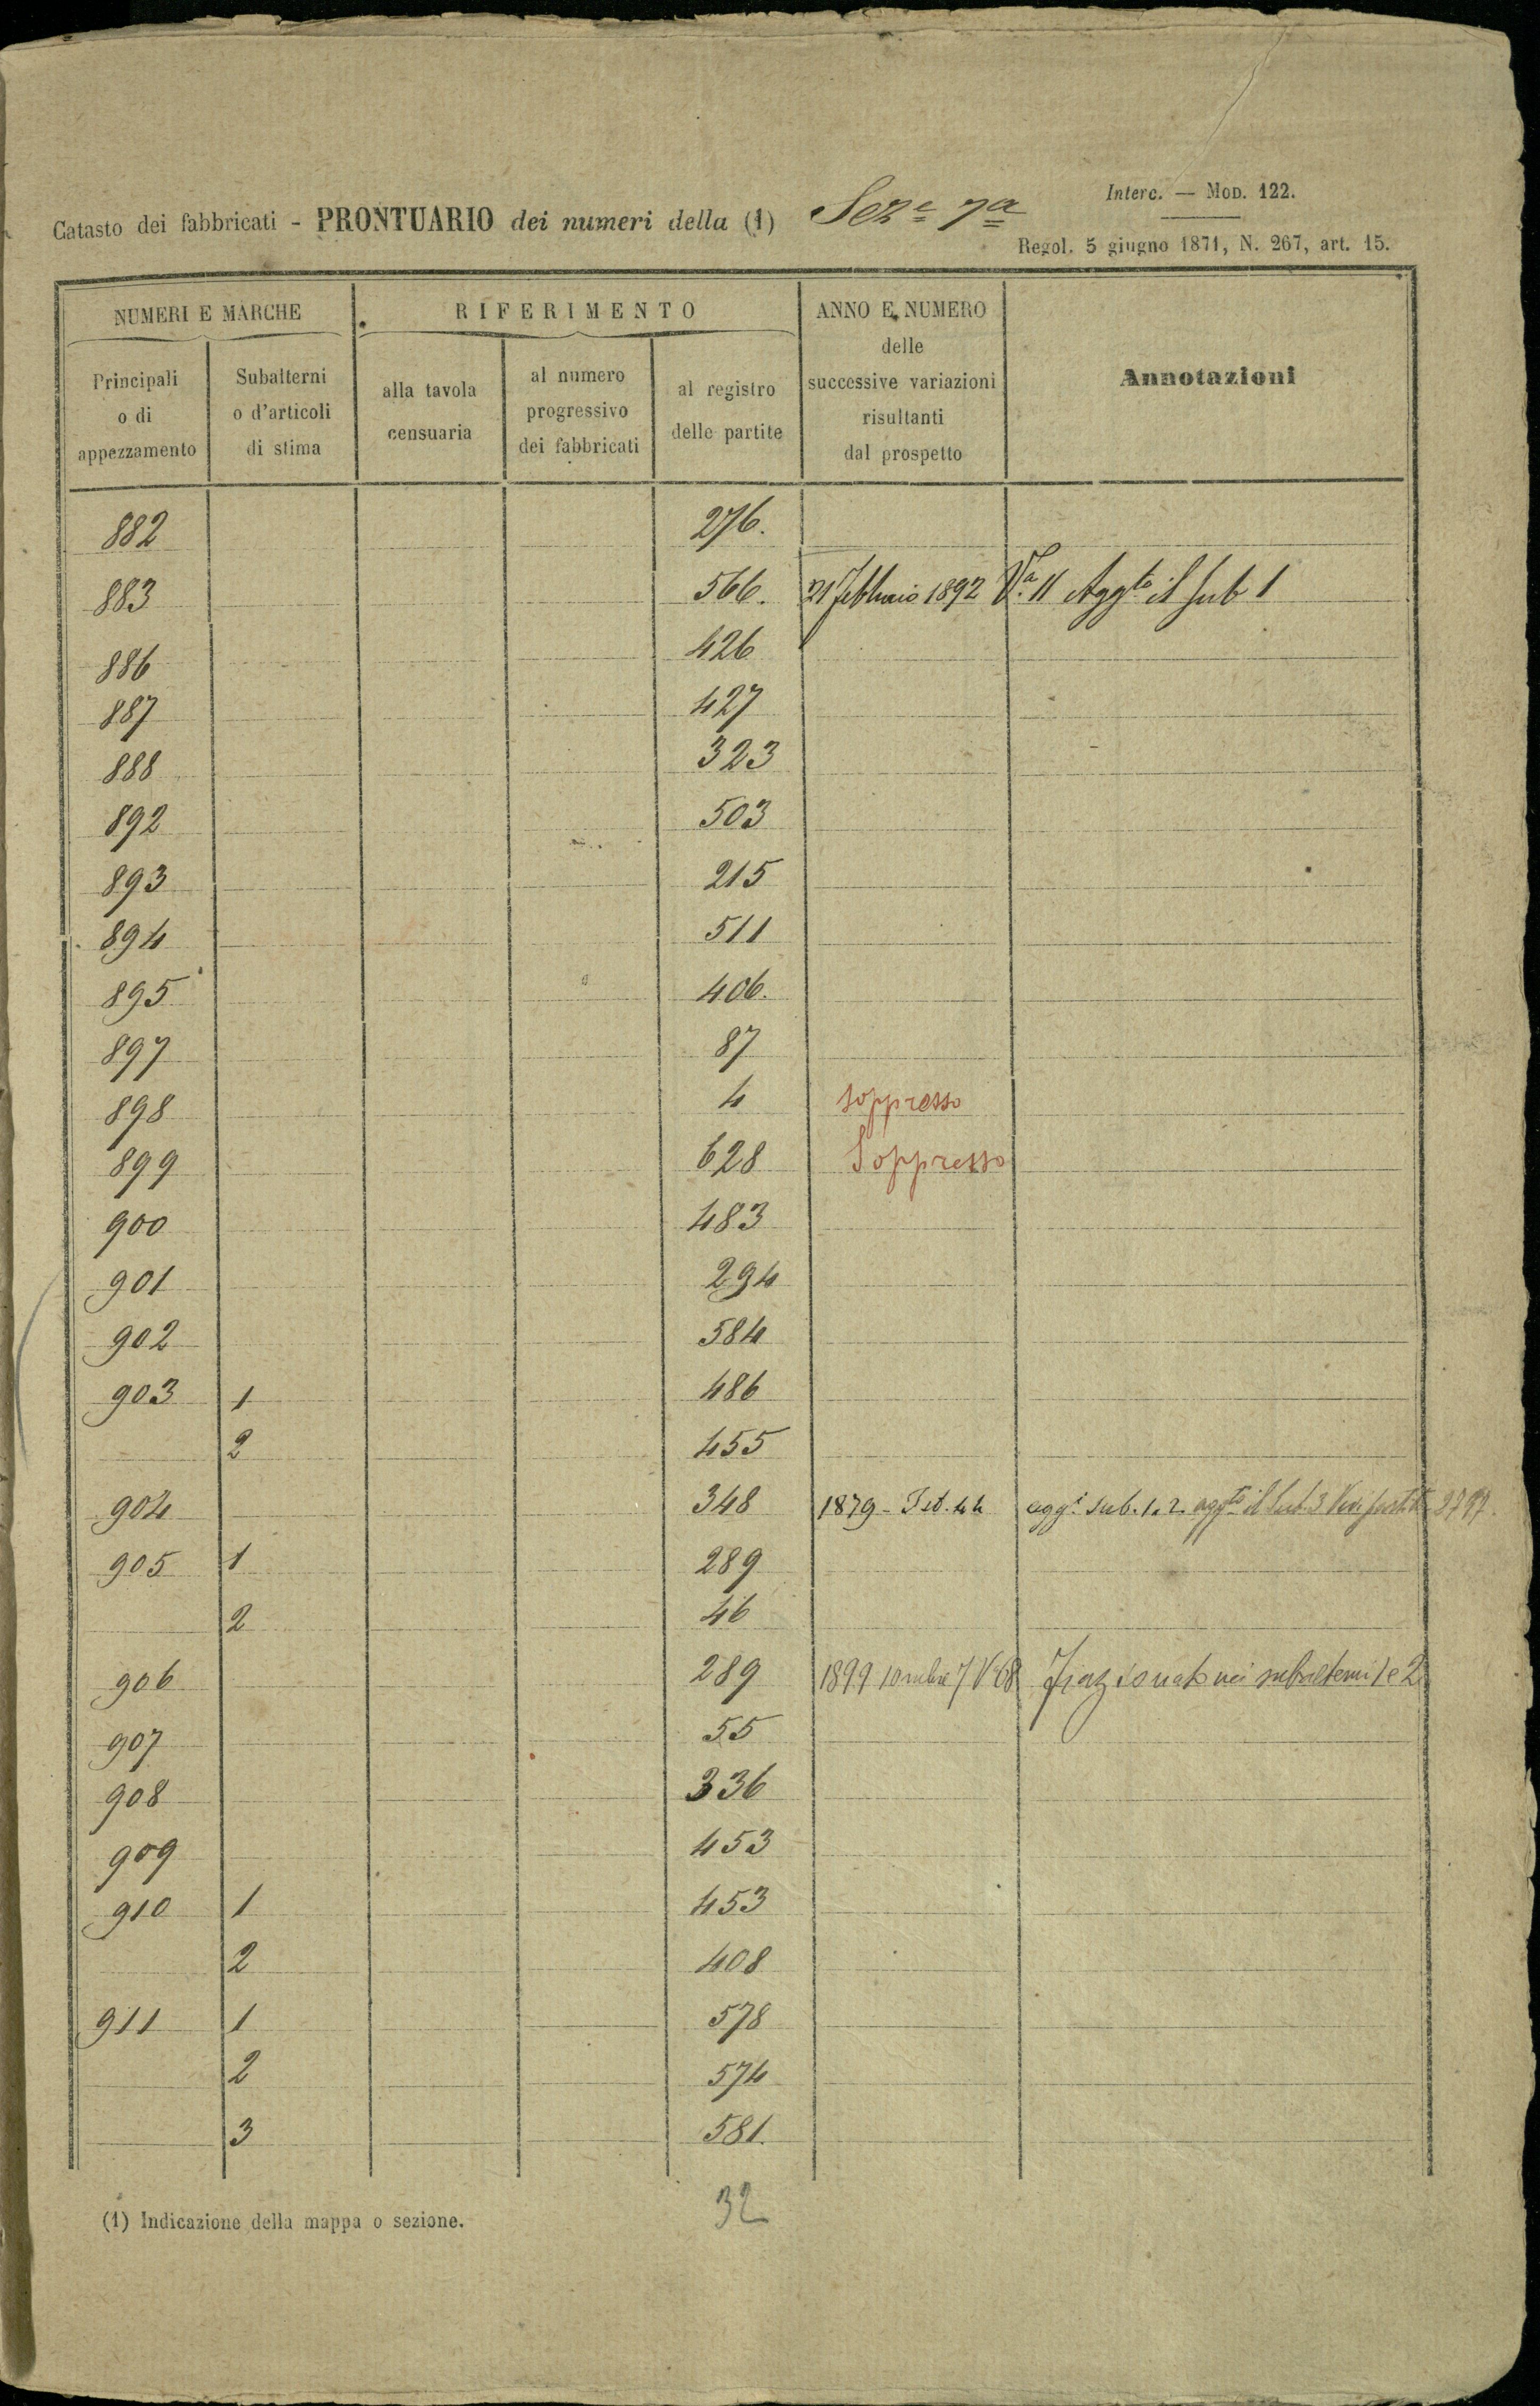 Interc. — Mod. 122.
Catasto dei fabbricati - PRONTUARIO dei numeri della (1) Sez.e 7a
Regol. 5 giugno 1871, N. 267, art. 15.
NUMERI E MARCHE
RIFERIMENTO
ANNO E NUMERO
delle
successive variazioni
risultanti
dal prospetto
Annotazioni
Principali
o di
appezzamento
Subalterni
o d'articoli
di stima
alla tavola
censuaria
al numero
progressivo
dei fabbricati
al registro
delle partite
882 276.
883 566. 21 Febbraio 1892 Va. 11 Aggto il Sub 1
886 426
887 427
888 323
892 503
893 215
894 511
895 406.
897 87
898 4 soppresso
899 628 Soppresso
900 483
901 294
902 584
903 1 486
2 455
904 348 1879 - 44 aggi. sub. 1. 2. aggto il Sub. 3 Vedi 2797.
905 1 289
2 46
906 289 1899 10mbre 7 V 68 Frazionato nei subalterni 1 e 2
907 55
908 336
909 453
910 1 453
2 408
911 1 578
2 574
3 581.
(1) Indicazione della mappa o sezione.
32